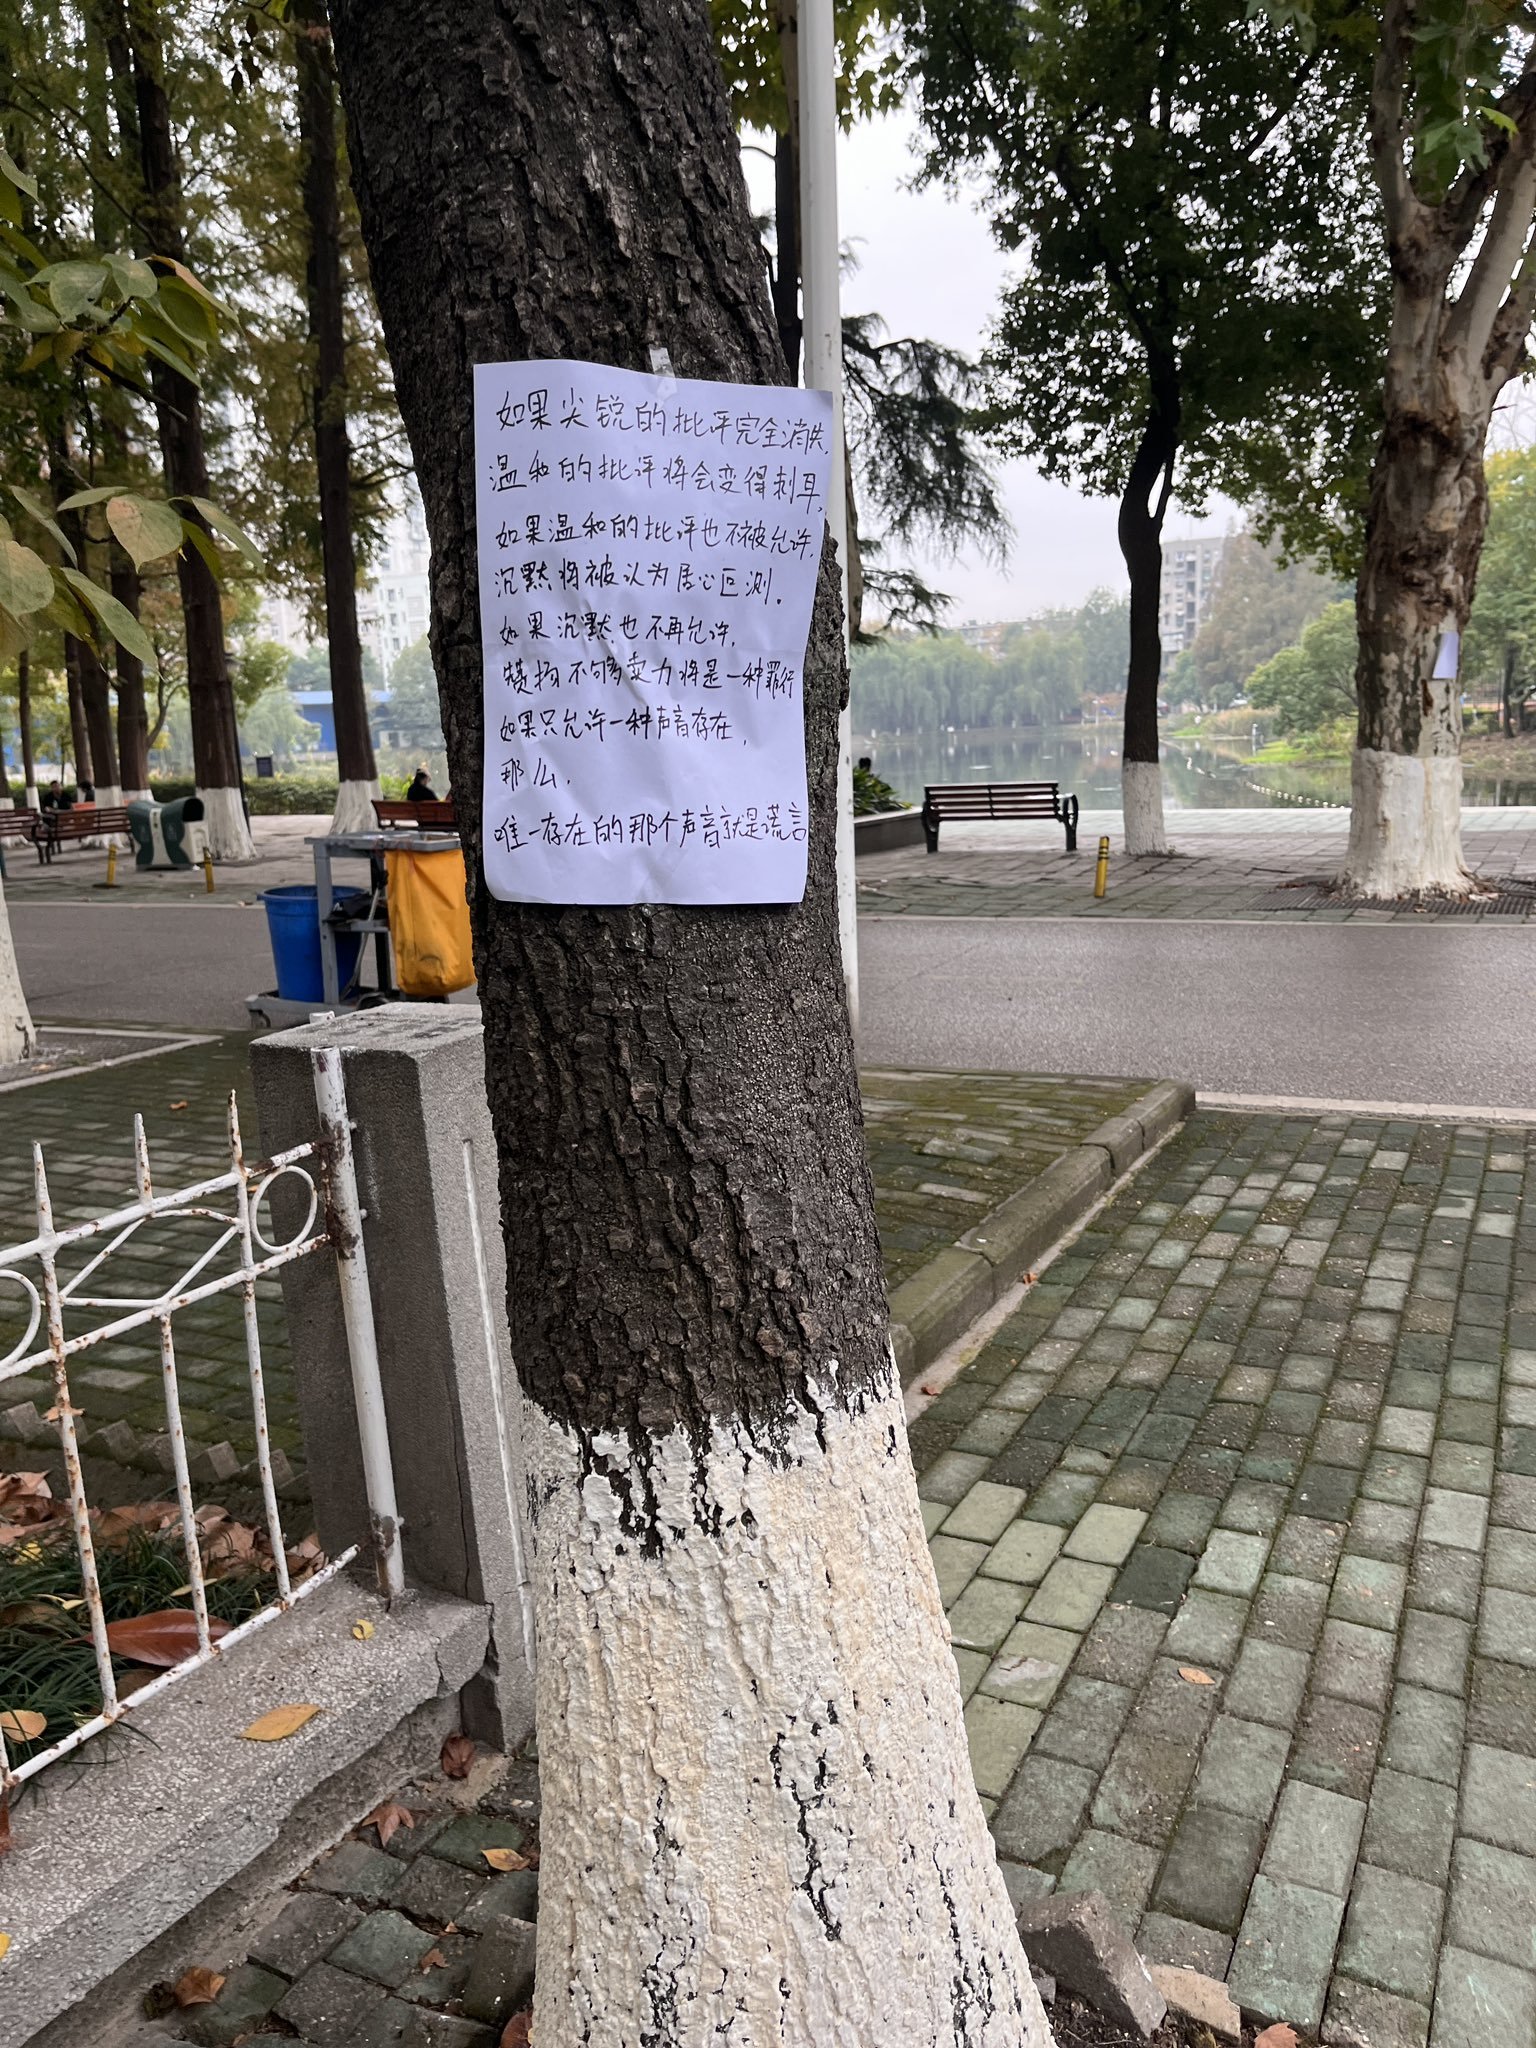 如果尖锐的批评完全消失,
温和的批评将会变得刺耳,
如果温和的批评也不被允许,
沉默将被认为居心叵测。
如果沉默也不再允许,
赞扬不够卖力将是一种罪行
如果只允许一种声音存在,
那么,
唯一存在的那个声音就是谎言